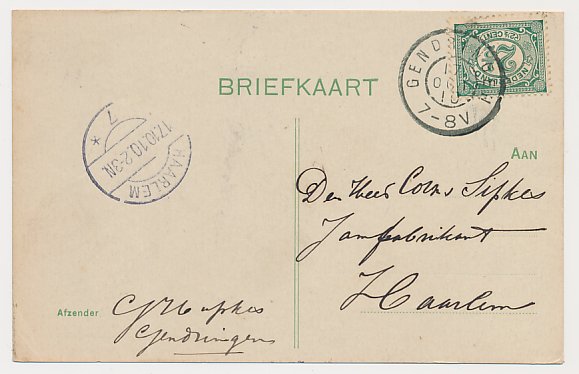 BRIEFKAART
NEDERLAND
2½ CENT
HAARLEM
17.10.10.2-3N
7 *
7-8V
AAN
Den Heer Corns Sipkes
Jamfabrikant
Haarlem
Afzender
Gendringen